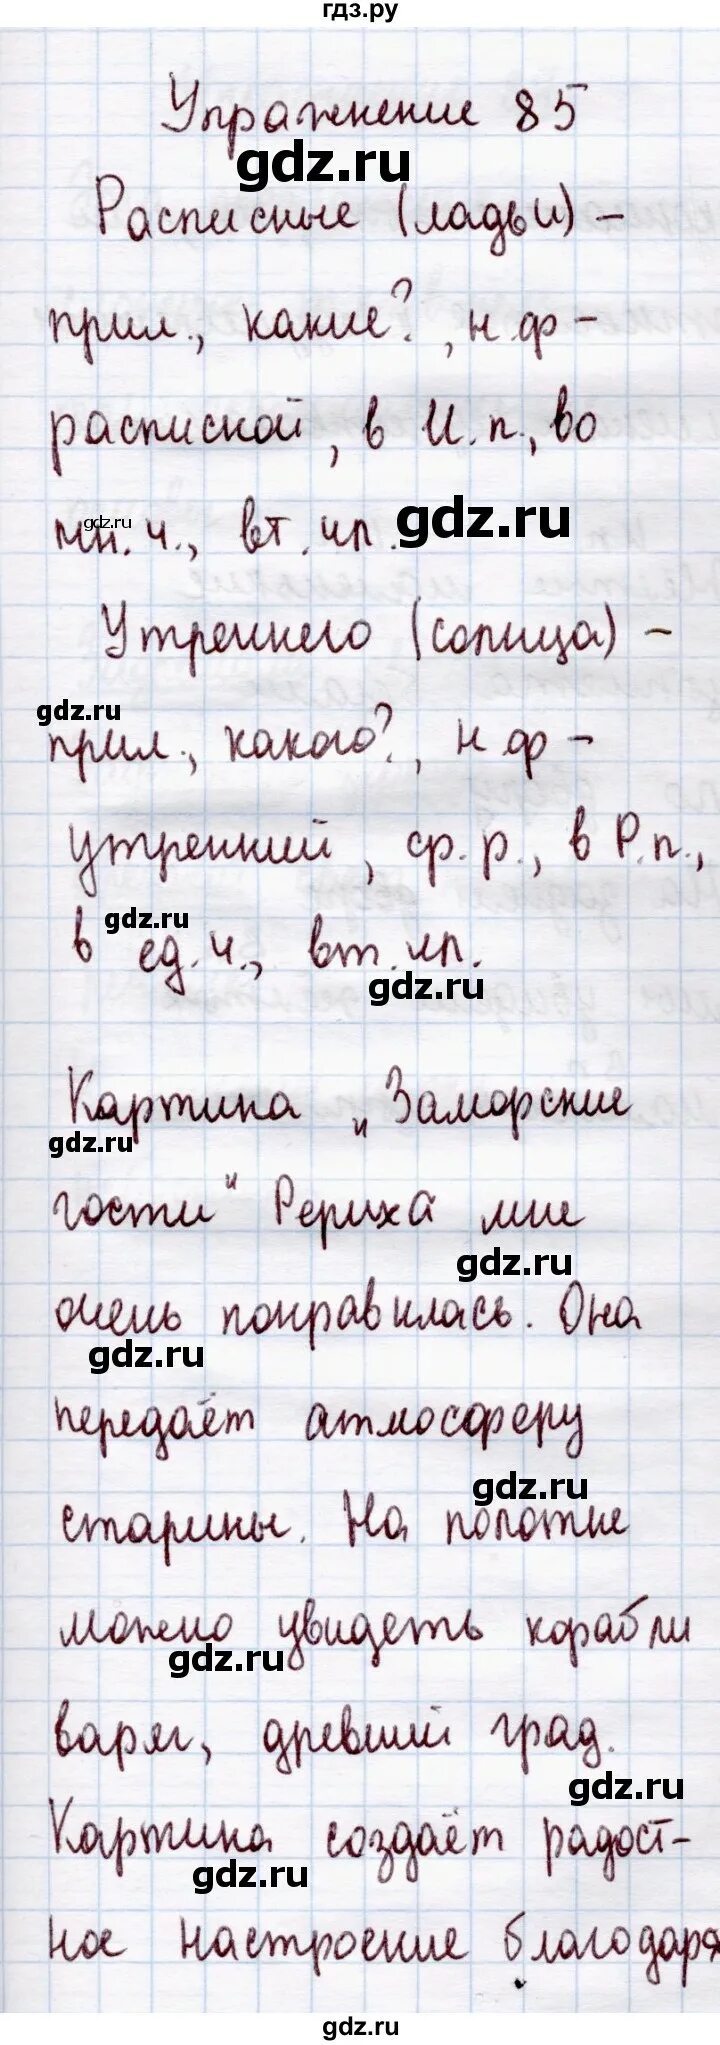 гдз.ру
Упражнение 85
gdz.ru
Расписные (ладьи) –
прил., какие?, н.ф –
расписной, в И.п., во
gdz.ru
gdz.ru
мн.ч., вт.чл.
Утреннего (солнца) –
gdz.ru
прил., какого?, н.ф –
утренний, ср.р., в Р.п.,
gdz.ru
в ед.ч., вт.чл.
gdz.ru
Картина „Заморские
gdz.ru
гости" Рериха мне
gdz.ru
очень понравилась. Она
gdz.ru
передаёт атмосферу
gdz.ru
старины. На полотне
можно увидеть корабли
gdz.ru
варяг, древний град.
gdz.ru
Картина создаёт радост-
gdz.ru
ное настроение благодаря
gdz.ru